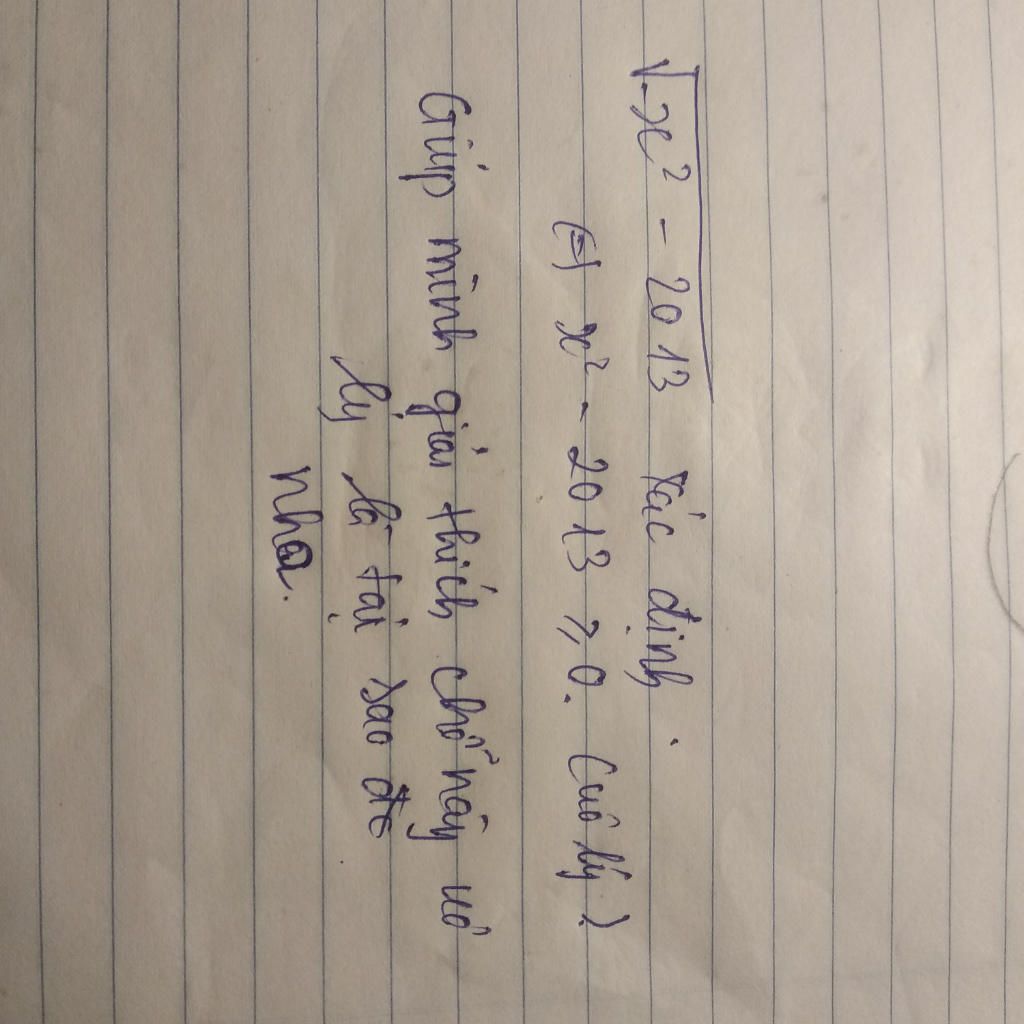 √-x² - 2013 xác định.
(=) x² - 2013 ≥ 0. (uô lý)
Giúp mình giải thích chỗ này uô
lý là tại sao đc
nha.